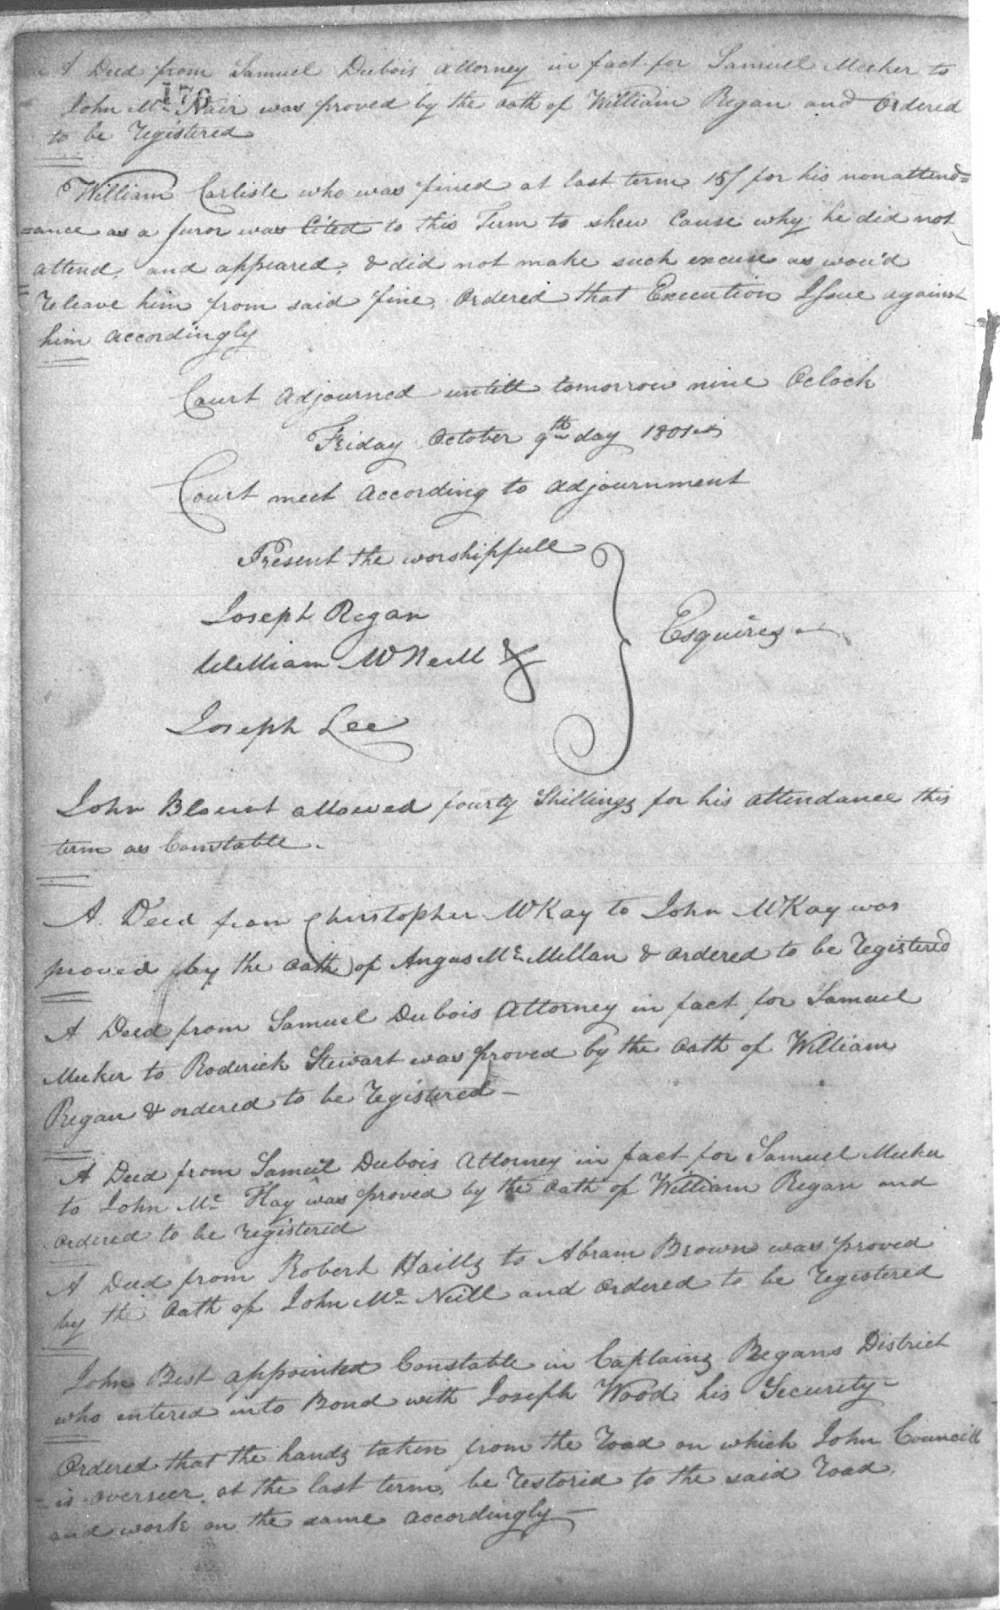 A Deed from Samuel Dubois attorney in fact for Samuel Meeker to
176
John Mc Nair was proved by the oath of William Regan and Ordered
to be Registered
William Carlisle who was fined at last term 15/ for his nonattend=
=ance as a Juror was Cited to this Term to shew Cause why he did not
attend, and appeared, & did not make such excuse as wou'd
releave him from said fine, Ordered that Execution Issue against
him accordingly
Court adjourned untill tomorrow nine Oclock
Friday October 9th day 1801
Court meet according to adjournment
Present the worshipfull
Joseph Regan
William McNeill &
Esquires
Joseph Lee
John Blount allowed fourty Shillings for his attendance this
term as Constable.
A Deed from Christopher McKay to John McKay was
proved by the oath of Angus Mc Millan & ordered to be registered
A Deed from Samuel Dubois Attorney in fact for Samuel
Meeker to Roderick Stewart was proved by the oath of William
Regan & ordered to be registered—
A Deed from Samuel Dubois Attorney in fact for Samuel Meeker
to John Mc Kay was proved by the oath of William Regan and
ordered to be registered
A Deed from Robert Hails to Abram Brown was proved
by the oath of John Mc Neill and ordered to be registered
John Best appointed Constable in Captains Regans District
who entered into Bond with Joseph Wood his Security—
Ordered that the hands taken from the road on which John Council
is overseer at the last term, be restored to the said road,
and work on the same accordingly—